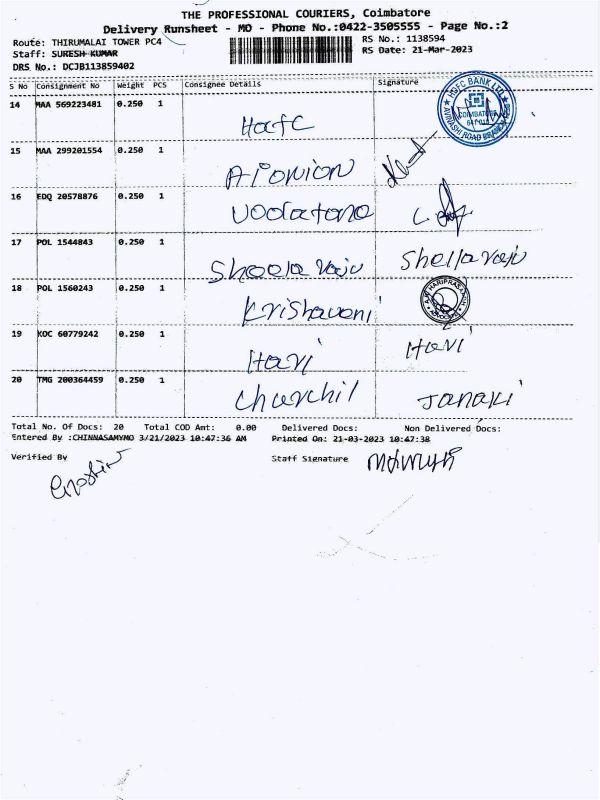 THE PROFESSIONAL COURIERS, Coimbatore
Delivery Runsheet - MO - Phone No.:0422-3505555 - Page No.:2
Route: THIRUMALAI TOWER PC4
RS No.: 1138594
Staff: SURESH KUMAR
RS Date: 21-Mar-2023
DRS No.: DCJB113859402
S No Consignment No Weight PCS Consignee Details Signature
14 MAA 569223481 0.250 1
Hdfc
HDFC BANK LTD.
COIMBATORE
641 018
AVINASHI ROAD BRANCH
15 MAA 299201554 0.250 1
16 EDQ 20578876 0.250 1
Vodafone
17 POL 1544843 0.250 1
Sheela raju Shella raju
18 POL 1560243 0.250 1
Krishaveni
19 KOC 60779242 0.250 1
Hari Hari
20 TMG 200364459 0.250 1
Churchil Janaki
Total No. Of Docs: 20 Total COD Amt: 0.00 Delivered Docs: Non Delivered Docs:
Entered By :CHINNASAMYMO 3/21/2023 10:47:36 AM Printed On: 21-03-2023 10:47:38
Verified By Staff Signature